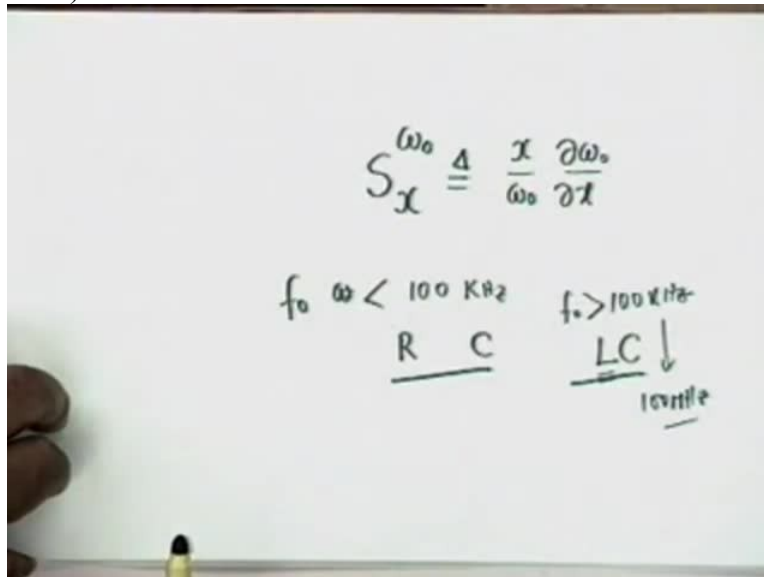 S_x^{ω₀} ≜ x/ω₀ ∂ω₀/∂x
f₀ ω < 100 KHz f₀ > 100 KHz
R C LC ↓
100MHz